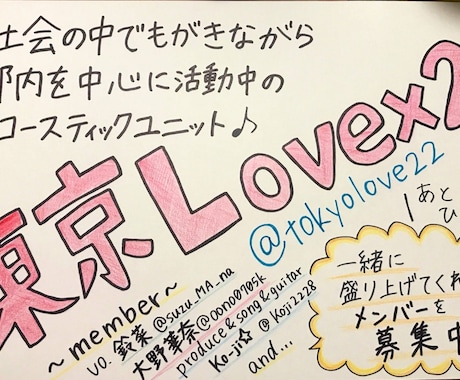 社会の中でもがきながら
都内を中心に活動中の
コースティックユニット♪
東京Love×2
@tokyolove22
あと
ひ
～member～
vo. 鈴菜 @suzu_MA_na
大野芽奈 @oono0705k
produce&song&guitar
Ko-ji☆ @Koji2228
and...
一緒に
盛り上げてくれ
メンバーを
募集中